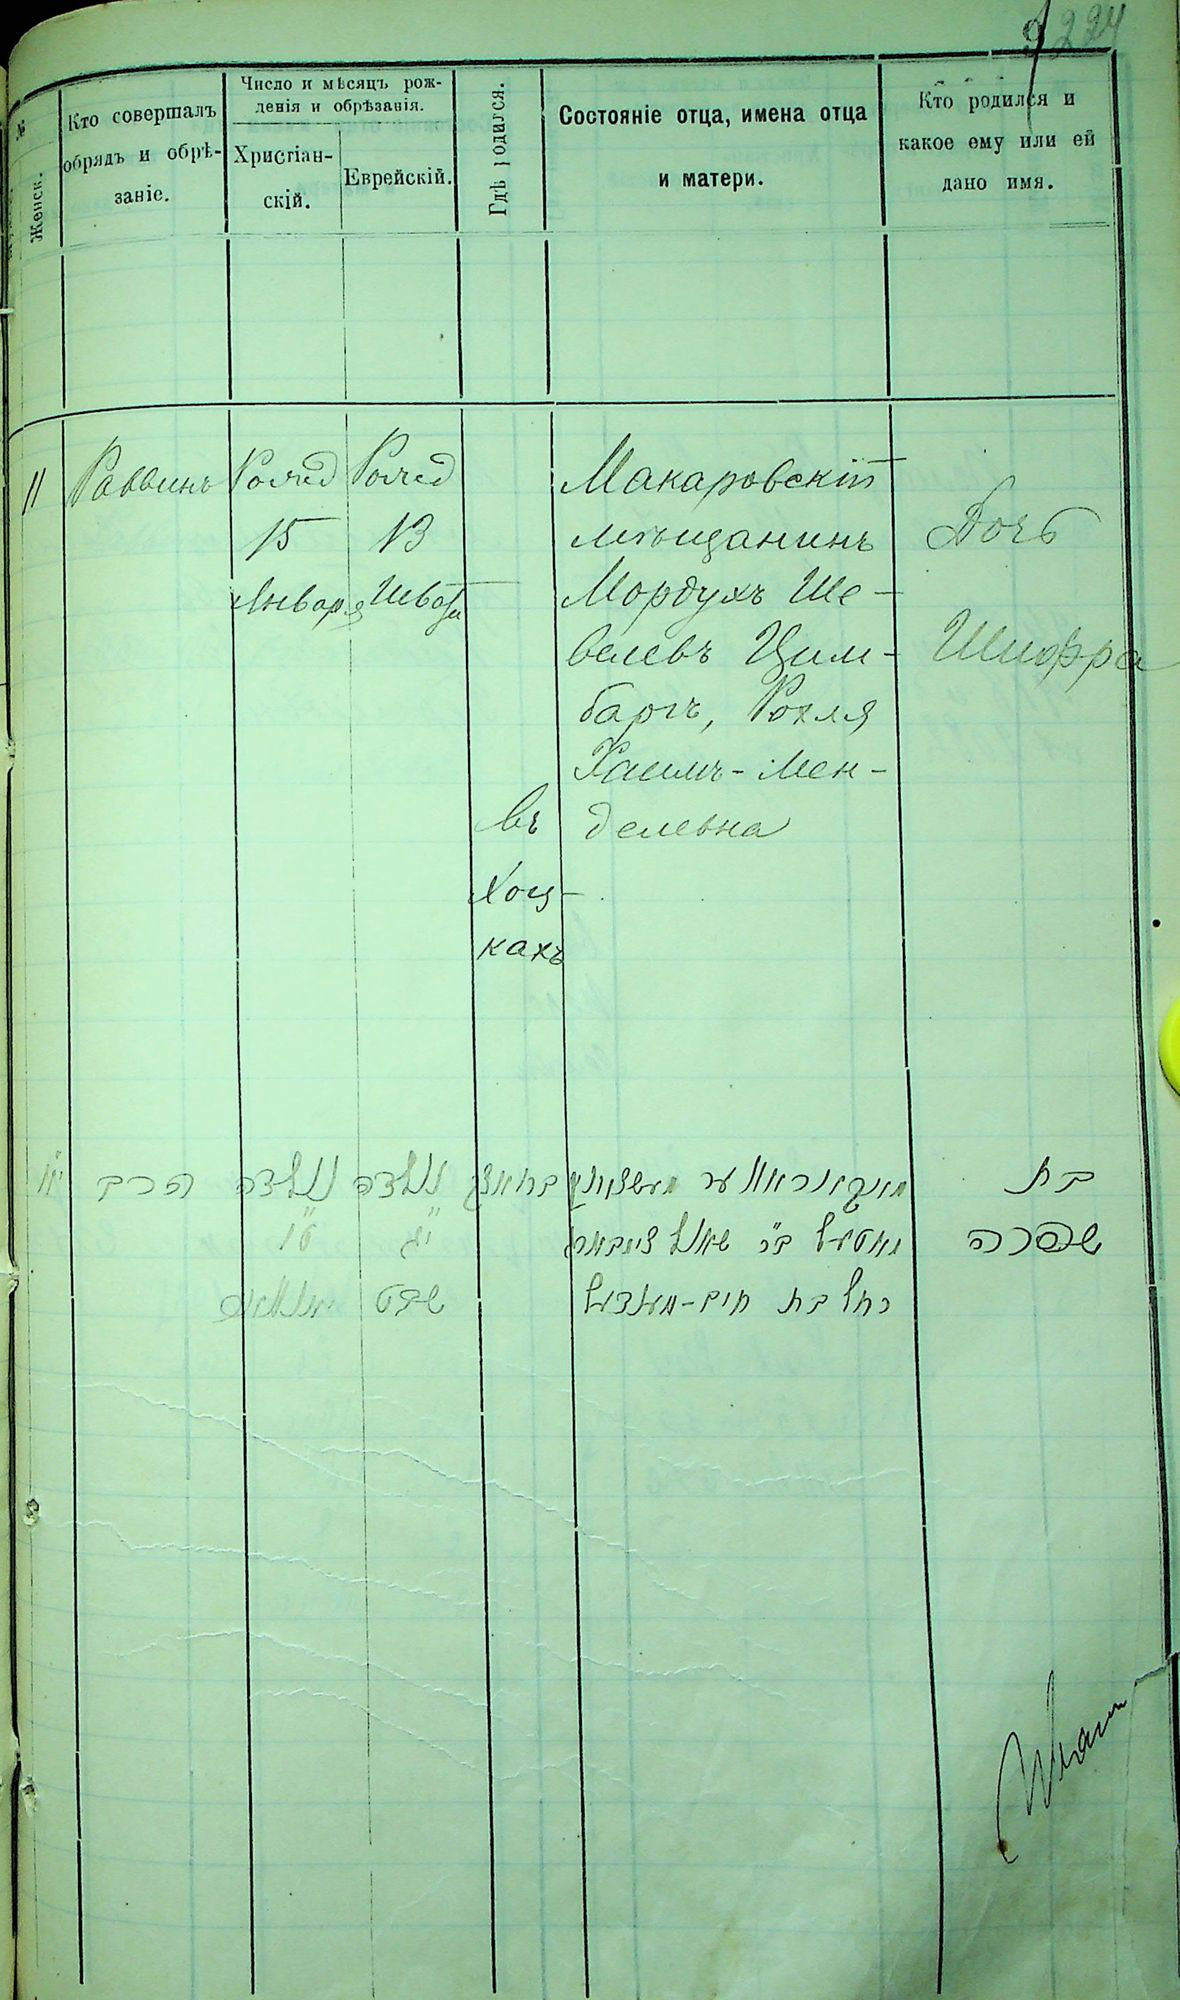 224
№
Женск.
Кто совершалъ
обрядъ и обрѣ-
заніе.
Число и мѣсяцъ рож-
денія и обрѣзанія.
Христіан-
скій.
Еврейскій.
Гдѣ родился.
Состояніе отца, имена отца
и матери.
Кто родился и
какое ему или ей
дано имя.
11
Раввинъ
Рожд
15
Января
Рожд
13
Швата
въ
Хощ-
кахъ
Макаровскій
мѣщанинъ
Мордухъ Ше-
велевъ Цим-
баргъ, Рохля
Хаимъ-Мен-
делевна
Дочь
Шифра
הרב
נולדה
ט"ו
נולדה
י"ג
שבט
רחל בת חיים-מענדעל
בת
שפרה